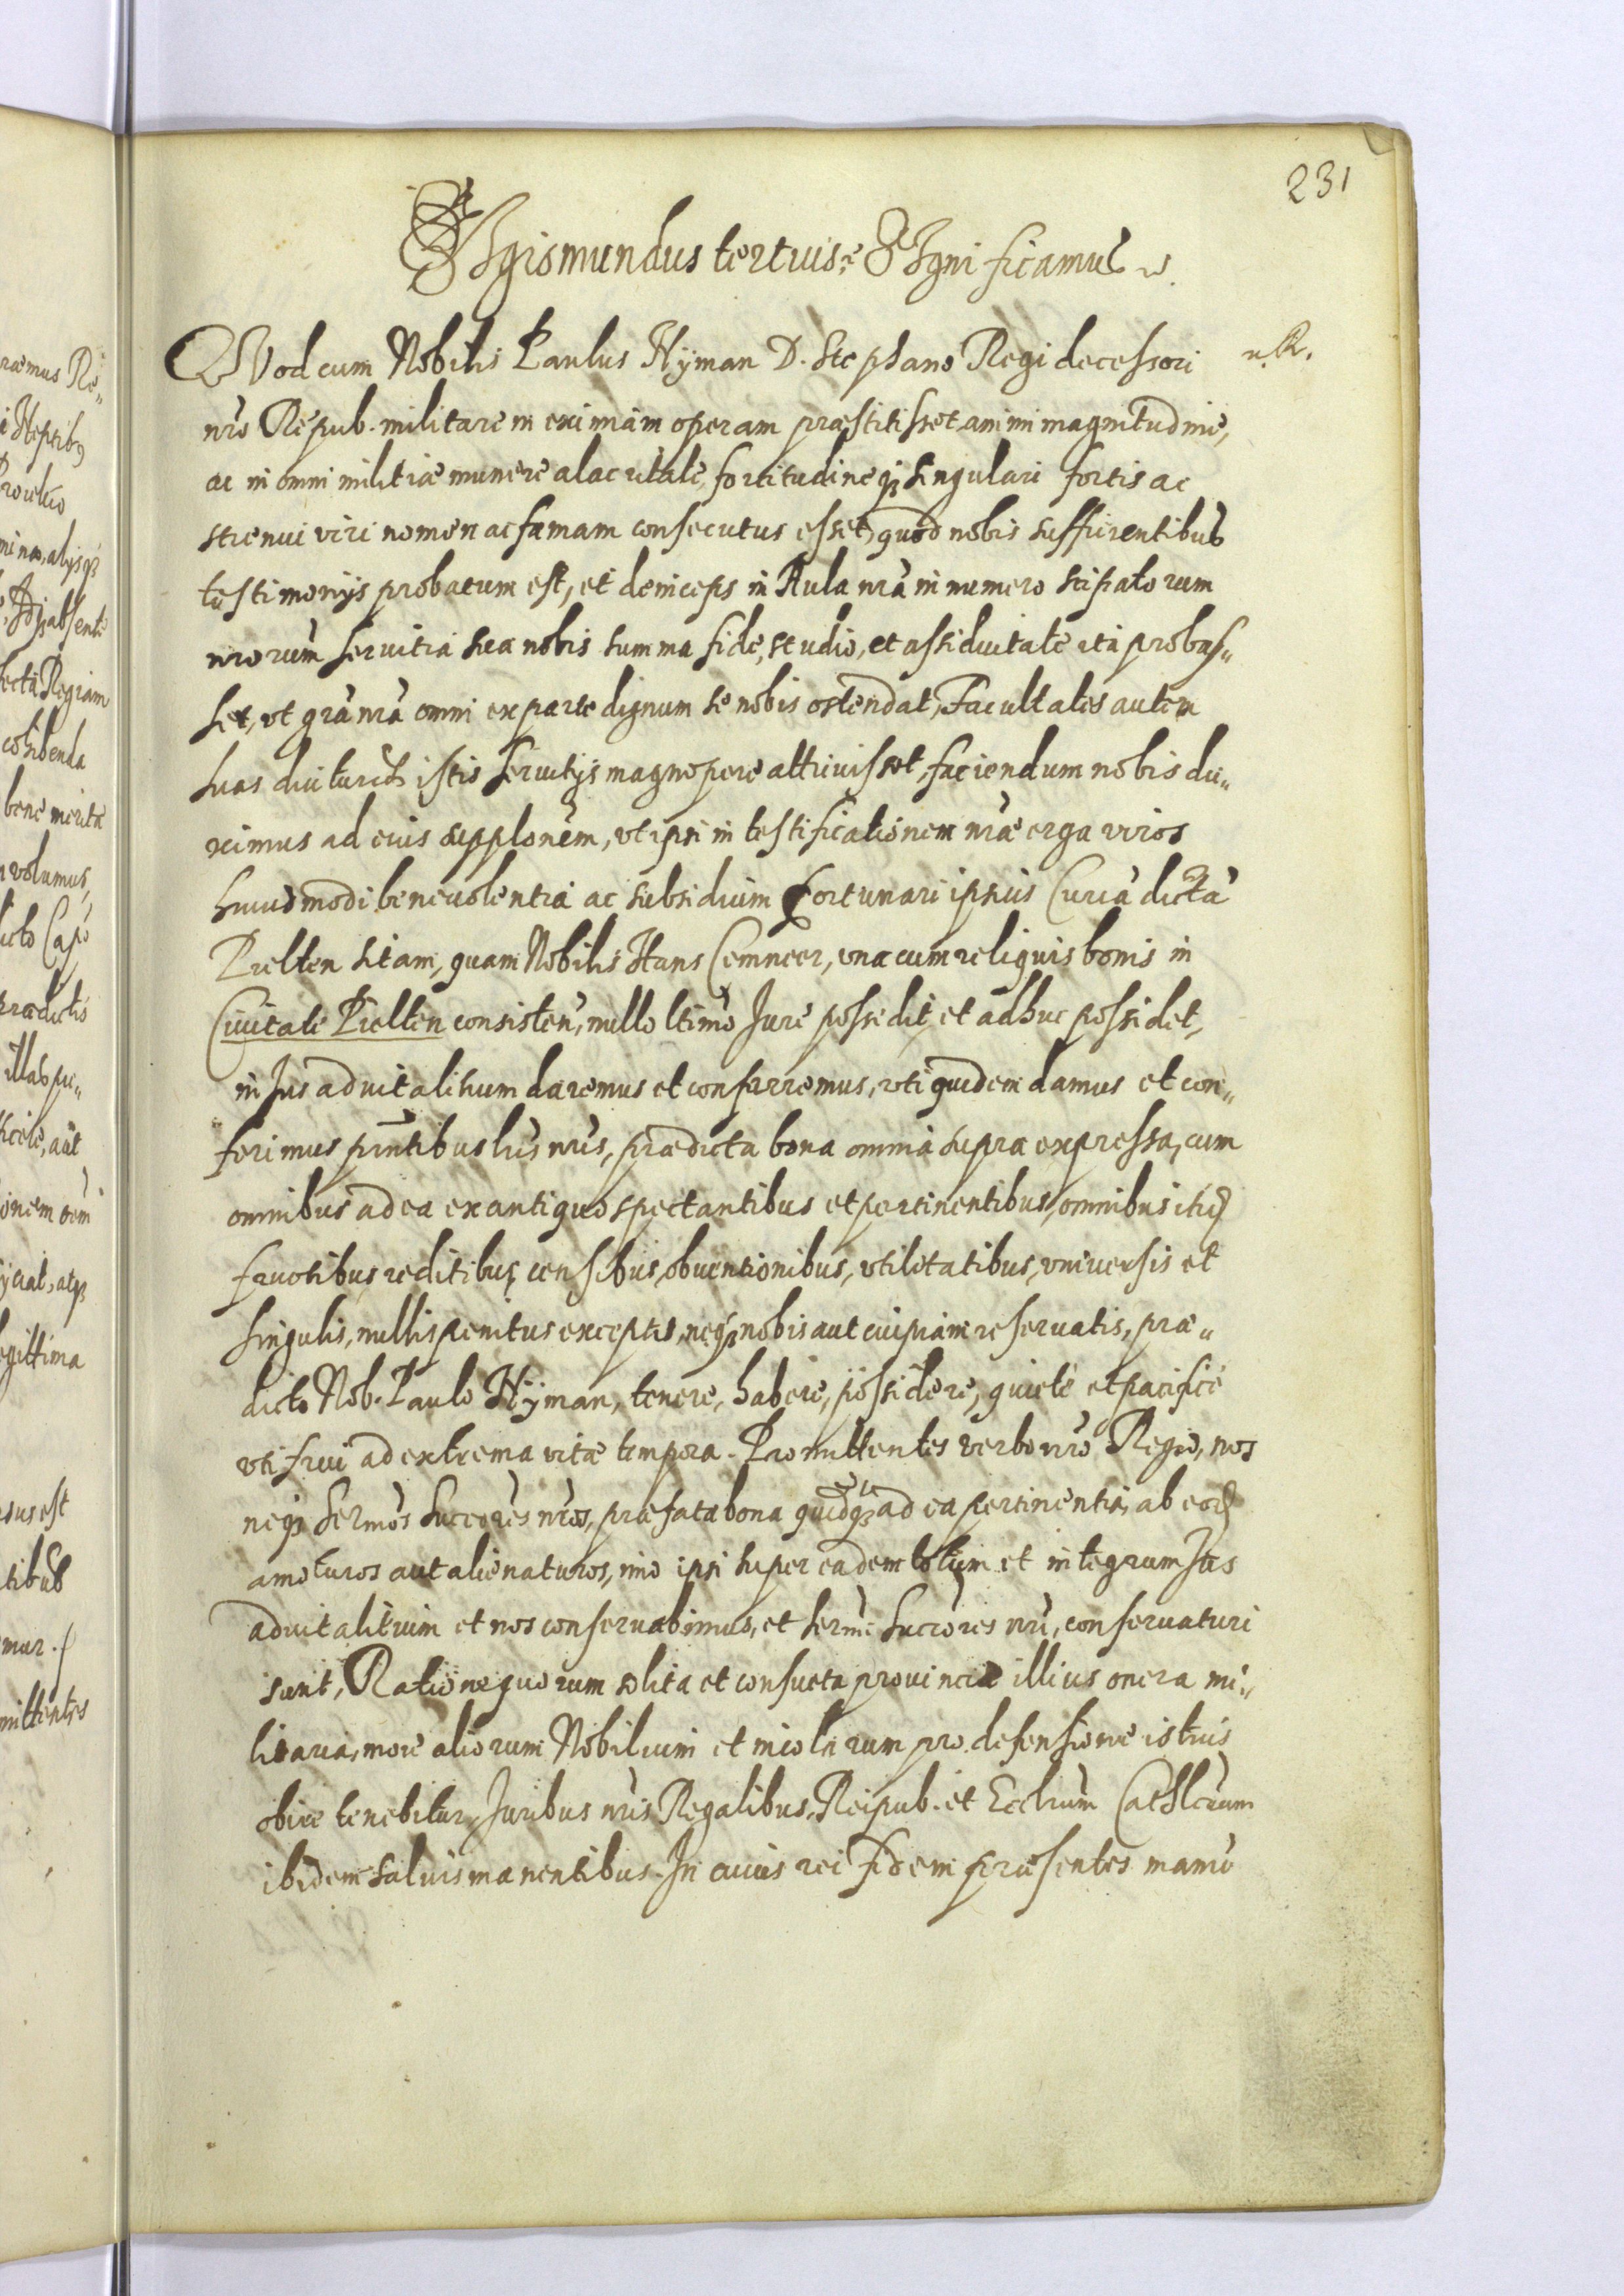 231
Sigismundus tertius &c Significamus
Quod cum Nobilis Paulus Hÿman D. Stephano Regi decessori
n. R.
nro Reipub. militarem eximiam operam præstitisset, animi magnitudine,
ac in omni militiæ munere alacritate, fortitudineq; singulari fortis ac
strenui viri nomen ac famam consecutus esset, quod nobis sufficientibus
testimonijs probatum est, et deinceps in Aula nrâ in numero stipatorum
nrorum servitia sua nobis summa fide, studio, et assiduitate ita probas„
set, vt grâ nrâ omni ex parte dignum se nobis ostendat, Facultates autem
suas diuturnis istis servitijs magnopere attriuisset, faciendum nobis du„
ximus ad eius supplonem, vt ipsi in testificationem nræ erga viros
huiusmodi beneuolentia ac subsidium fortunarū ipsius Curiā dictā
Pielten sitam, quam Nobilis Hans Cemneer, vna cum reliquis bonis in
Ciuitate Pielten consisten, nullo ltimo Jure possedit et adhuc possidet,
in Jus aduitalitium daremus et conferremus, vti quidem damus et con„
ferimus pntibus lris nris, prædicta bona omnia supra expressa, cum
omnibus ad ea ex antiquo spectantibus et pertinentibus, omnibus itidē
fructibus, reditibus, censibus, obuentionibus, vtilitatibus, vniuersis et
singulis, nullis penitus exceptis, neq; nobis aut cuipiam reseruatis, præ„
dicto Nob. Paulo Hÿman, tenere, habere, possidere, quietè et pacificè
vti frui ad extrema vitæ tempora. Promittentes verbo nro Regio, nos
neq; Sermos Succores nros, præfata bona quidq; ad ea pertinentia, ab eodē
amoturos aut alienaturos, imo ipsi super eadem totum et integrum Jus
aduitalitium et nos conseruabimus, et sermi Succores nri, conseruaturi
sunt, Ratione quorum solita et consueta prouinciæ illius onera mi„
litaria, more aliorum Nobilium et incolarum pro defensione istius
obire tenebitur, Juribus nris Regalibus, Reipub. et Ecclrum Cathlcarum
ibidem saluis manentibus. In cuius rei fidem præsentes manu